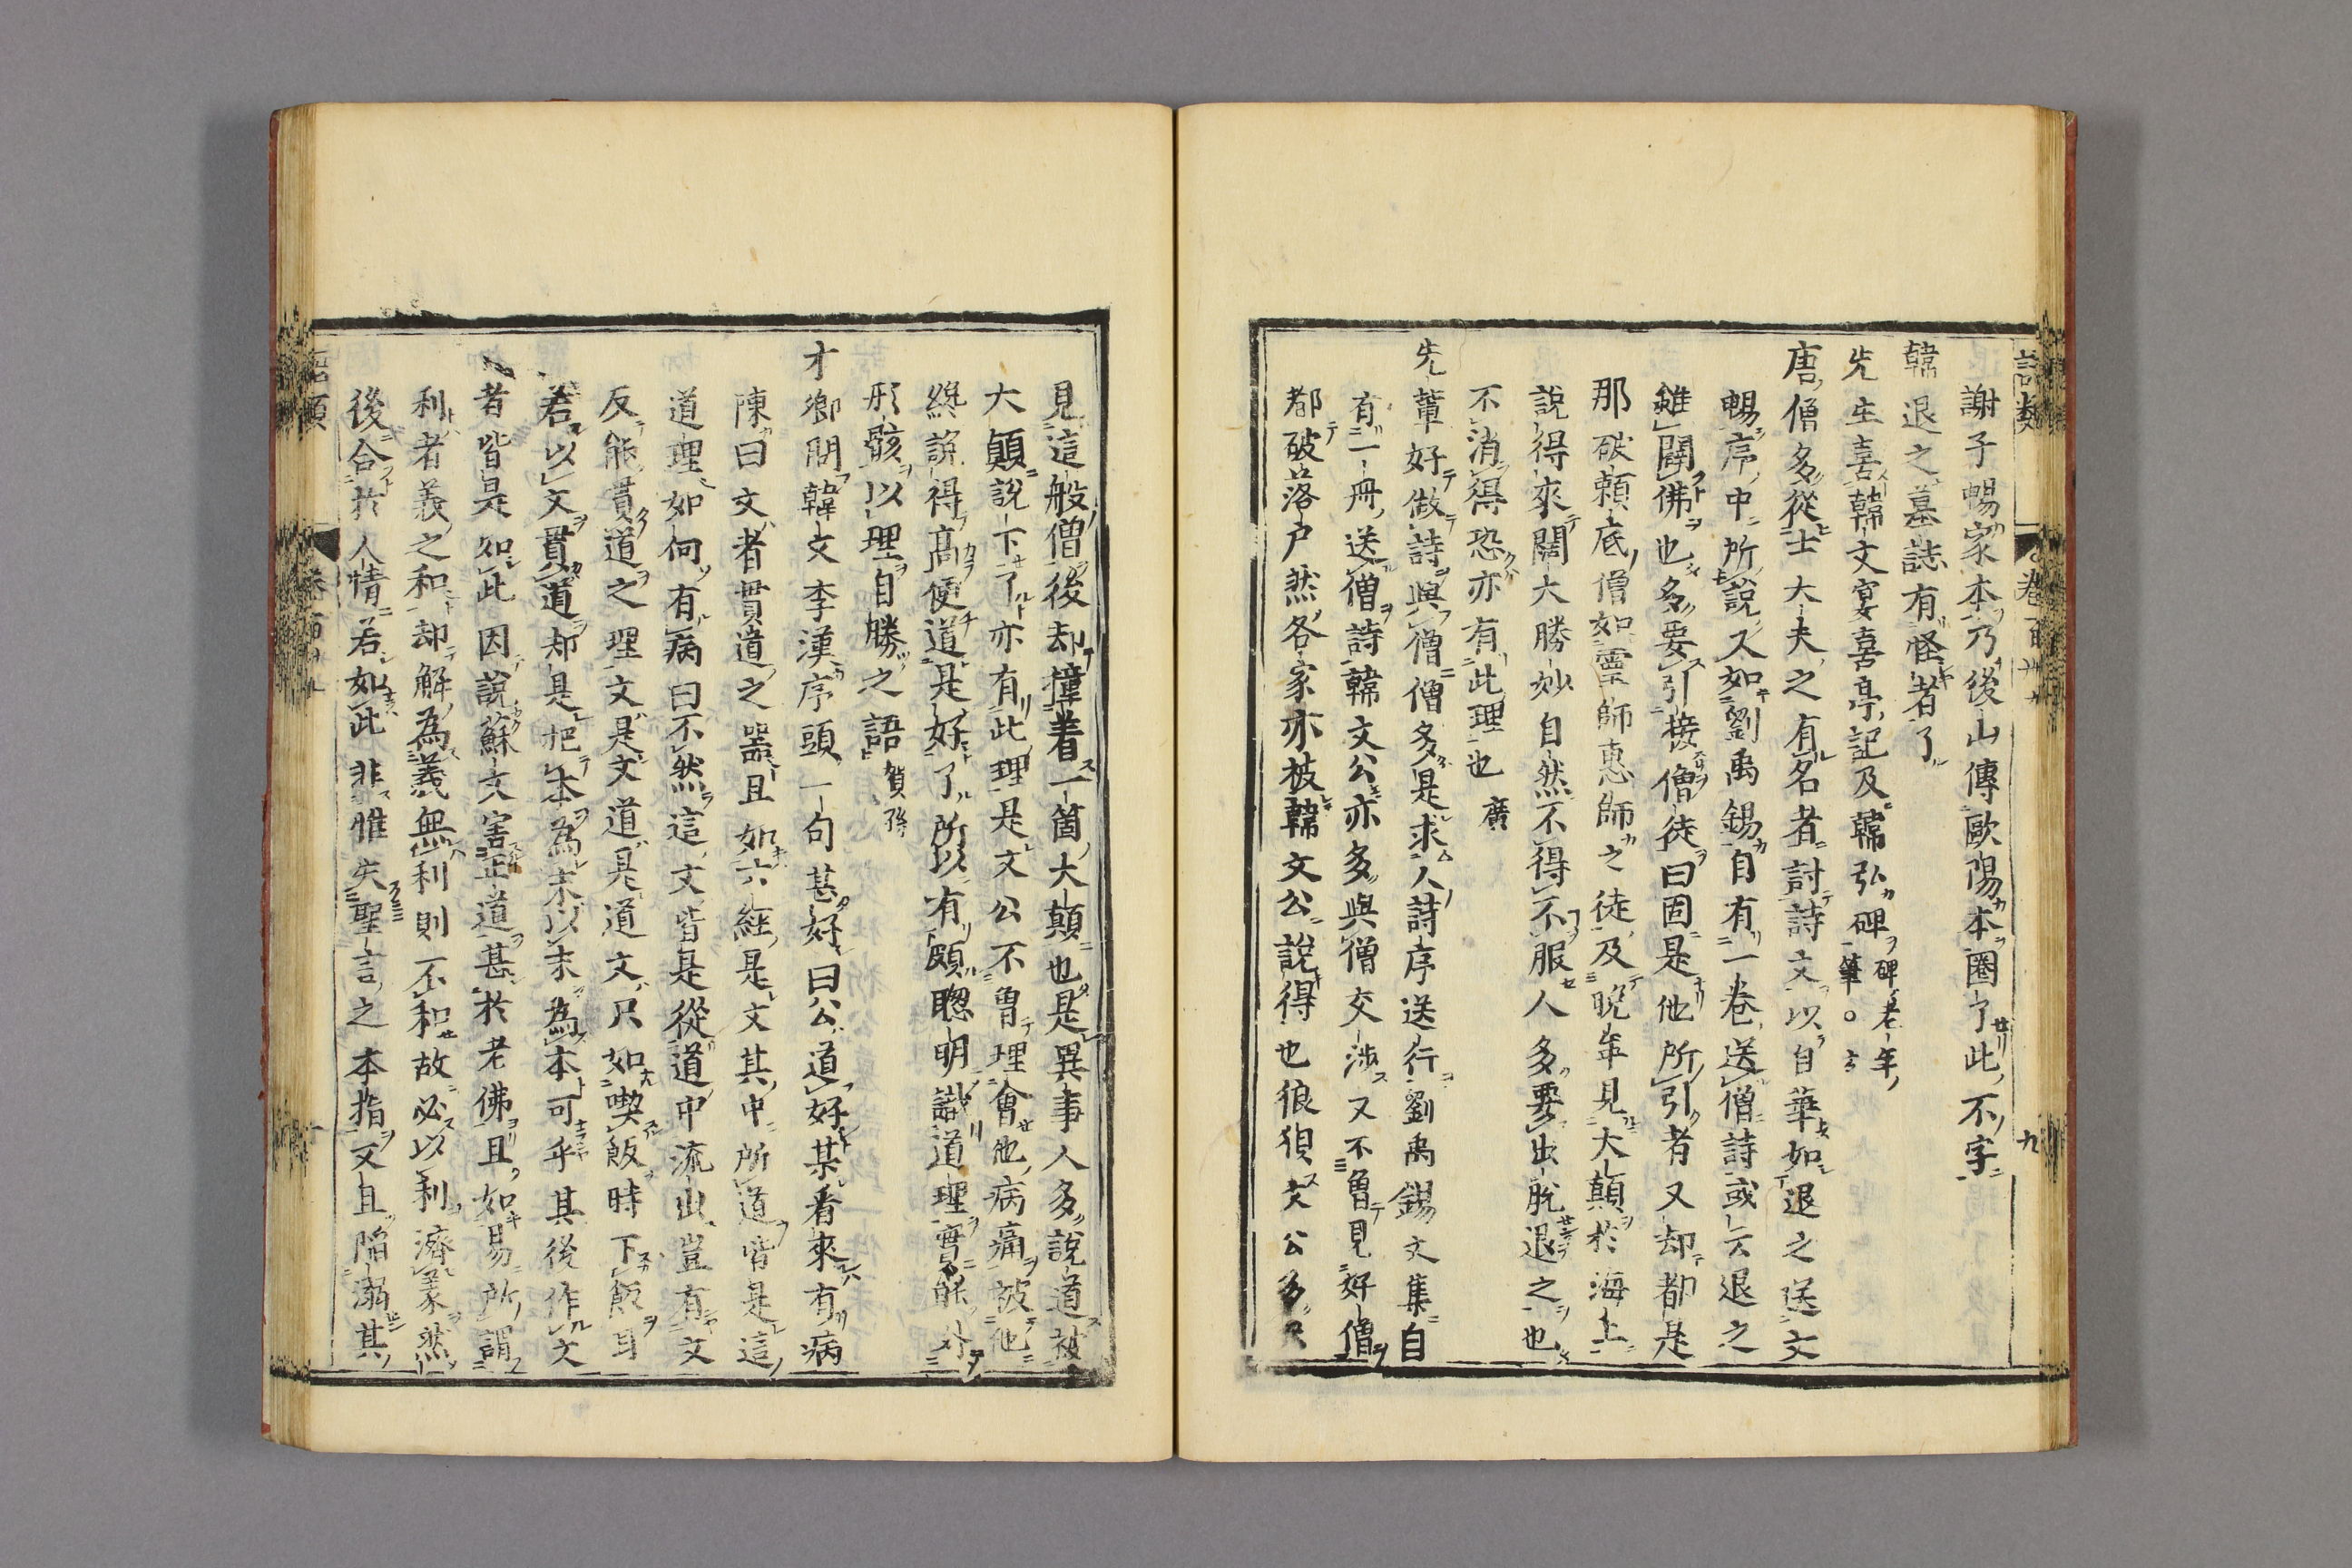 謝子暢家本乃後山傳歐陽本圈了此不字
韓退之墓誌有怪者了
先生喜韓文宴喜亭記及韓弘碑碑老年筆○方
唐僧多從士大夫之有名者討詩文以自華如退之送文
暢序中所說又如劉禹錫自有一卷送僧詩或云退之
雖闢佛也多要引接僧徒曰固是他所引者又却都是
那破賴底僧如靈師惠師之徒及晚年見大顛於海上
說得來闊大勝妙自然不得不服人多要出脫退之也
不消得恐亦有此理也廣
先輩好做詩與僧僧多是求人詩序送行劉禹錫文集自
有一冊送僧詩韓文公亦多與僧交涉又不曾見好僧
都破落戶然各家亦被韓文公說得也狼狽文公多只
見這般僧後却撞着一箇大顛也是異事人多說道被
大顛說下了亦有此理是文公不曾理會他病痛被他
纔說得高便道是好了所以有頗聰明識道理實能外
形骸以理自勝之語賀孫
才卿問韓文李漢序頭一句甚好曰公道好某看來有病
陳曰文者貫道之器且如六經是文其中所道皆是這
道理如何有病曰不然這文皆是從道中流出豈有文
反能貫道之理文是文道是道文只如喫飯時下飯耳
若以文貫道却是把本為末以末為本可乎其後作文
者皆是如此因說蘇文害正道甚於老佛且如易所謂
利者義之和却解為義無利則不和故必以利濟義然
後合於人情若如此非惟失聖言之本指又且陷溺其